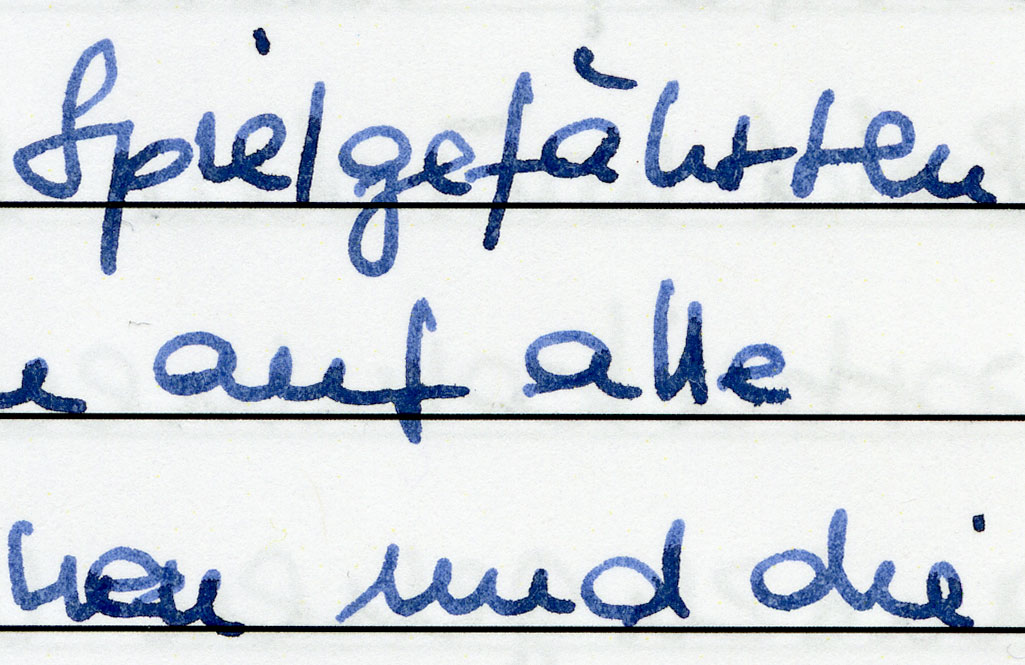 Spielgefährten
auf alle
und die